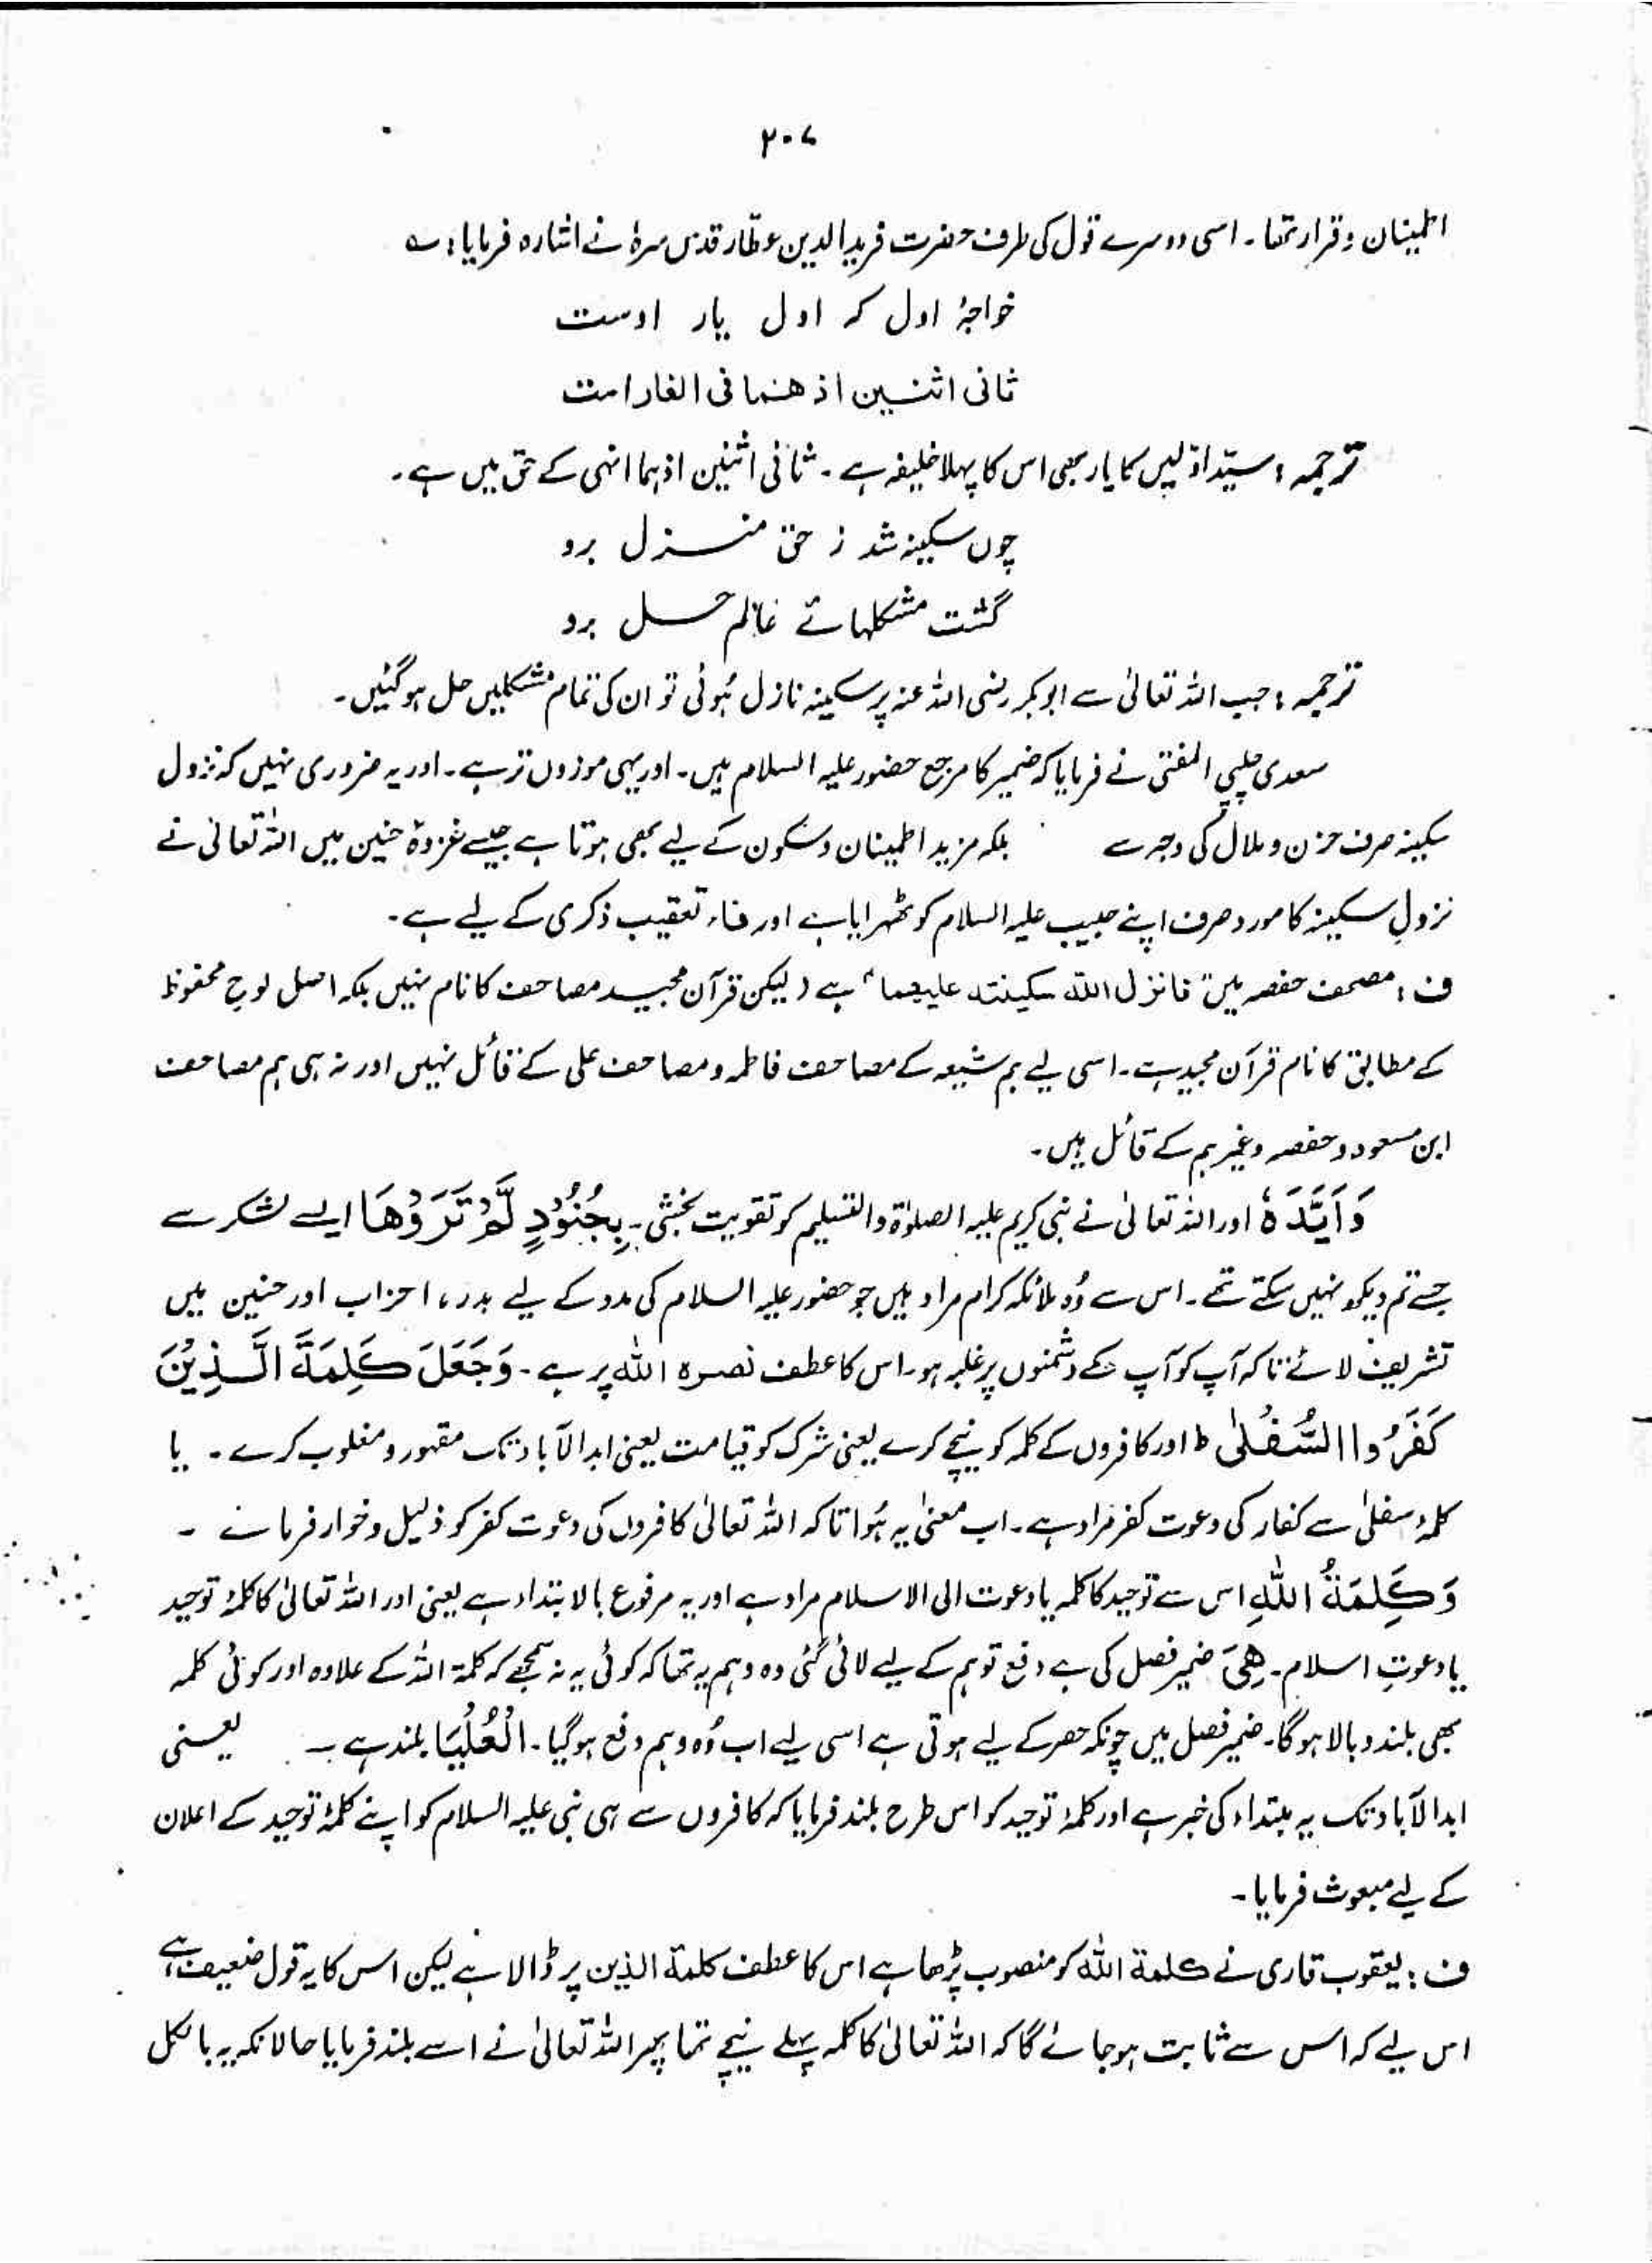 ۲۰۷
اطمینان و قرار تھا۔ اسی دوسرے قول کی طرف حضرت فرید الدین عطّار قدس سرہٗ نے اشارہ فرمایا: ؎
خواجۂ اول کہ اول یار اوست
ثانی اثنین اذ هما فی الغار اوست
ترجمہ: سیّد اوّلیں کا یار بھی اس کا پہلا خلیفہ ہے۔ ثانی اثنین اذہما انہی کے حق میں ہے۔
چوں سکینہ شد ز حق منزل برو
گشت مشکلہائے عالم حل برو
ترجمہ: جب اللہ تعالیٰ سے ابوبکر رضی اللہ عنہ پر سکینہ نازل ہُوئی تو ان کی تمام مشکلیں حل ہوگئیں۔
سعدی چلپی المفتی نے فرمایا کہ ضمیر کا مرجع حضور علیہ السلام ہیں۔ اور یہی موزوں تر ہے۔ اور یہ ضروری نہیں کہ نزول
سکینہ صرف حزن و ملال کی وجہ سے بلکہ مزید اطمینان و سکون کے لیے بھی ہوتا ہے جیسے غزوۂ حنین میں اللہ تعالیٰ نے
نزولِ سکینہ کا مورد صرف اپنے حبیب علیہ السلام کو ٹھہرایا ہے اور فاء تعقیب ذکری کے لیے ہے۔
ف: مصحف حفصہ میں "فانزل اللہ سکینتہ علیهما" ہے (لیکن قرآن مجید مصاحف کا نام نہیں بلکہ اصل لوحِ محفوظ
کے مطابق کا نام قرآن مجید ہے۔ اسی لیے ہم شیعہ کے مصاحف فاطمہ و مصاحف علی کے قائل نہیں اور نہ ہی ہم مصاحف
ابن مسعود و حفصہ وغیرہم کے قائل ہیں۔
وَاَيَّدَهٗ اور اللہ تعالیٰ نے نبی کریم علیہ الصلوٰۃ والتسلیم کو تقویت بخشی۔ بِجُنُوْدٍ لَّمْ تَرَوْهَا ایسے لشکر سے
جسے تم دیکھ نہیں سکتے تھے۔ اس سے وُہ ملائکہ کرام مراد ہیں جو حضور علیہ السلام کی مدد کے لیے بدر، احزاب اور حنین میں
تشریف لائے تاکہ آپ کو آپ کے دشمنوں پر غلبہ ہو۔ اس کا عطف نصره الله پر ہے۔ وَجَعَلَ كَلِمَةَ الَّذِيْنَ
كَفَرُوا السُّفْلٰى ط اور کافروں کے کلمہ کو نیچے کرے یعنی شرک کو قیامت یعنی ابدالآباد تک مقہور و مغلوب کرے۔ یا
کلمۂ سفلیٰ سے کفار کی دعوت کفر مراد ہے۔ اب معنیٰ یہ ہُوا تاکہ اللہ تعالیٰ کافروں کی دعوت کفر کو ذلیل و خوار فرمائے۔
وَكَلِمَةُ اللّٰهِ اس سے توحید کا کلمہ یا دعوت الی الاسلام مراد ہے اور یہ مرفوع بالابتداء ہے یعنی اور اللہ تعالیٰ کا کلمۂ توحید
یا دعوتِ اسلام۔ هِيَ ضمیر فصل کی ہے دفع توہم کے لیے لائی گئی وہ وہم یہ تھا کہ کوئی یہ نہ سمجھے کہ کلمۃ اللہ کے علاوہ اور کوئی کلمہ
بھی بلند و بالا ہوگا۔ ضمیر فصل میں چونکہ حصر کے لیے ہوتی ہے اسی لیے اب وُہ وہم دفع ہوگیا۔ الْعُلْيَا بلند ہے۔ یعنی
ابدالآباد تک یہ مبتداء کی خبر ہے اور کلمۂ توحید کو اس طرح بلند فرمایا کہ کافروں سے ہی نبی علیہ السلام کو اپنے کلمۂ توحید کے اعلان
کے لیے مبعوث فرمایا۔
ف: یعقوب قاری نے كلمة الله کو منصوب پڑھا ہے اس کا عطف کلمة الذین پر ڈالا ہے لیکن اس کا یہ قول ضعیف ہے
اس لیے کہ اس سے ثابت ہوجائے گا کہ اللہ تعالیٰ کا کلمہ پہلے نیچے تھا پھر اللہ تعالیٰ نے اسے بلند فرمایا حالانکہ یہ بالکل